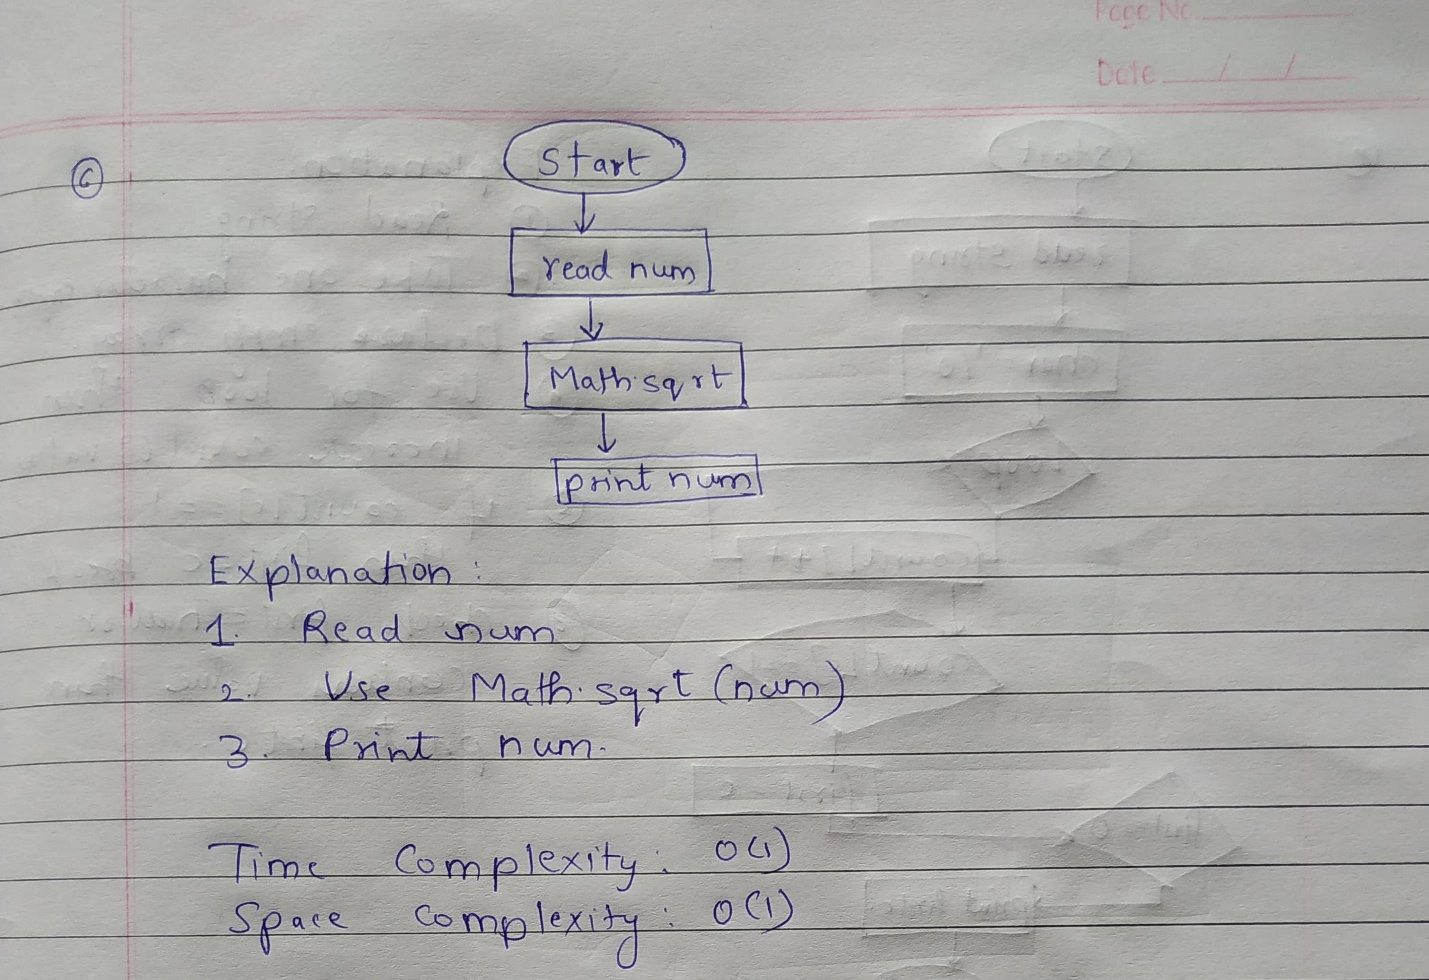 Page No
Date / /
6
Start
read num
Math.sqrt
print num
Explanation :
1. Read num
2. Use Math.sqrt (num)
3. Print num.
Time Complexity : O(1)
Space complexity : O(1)